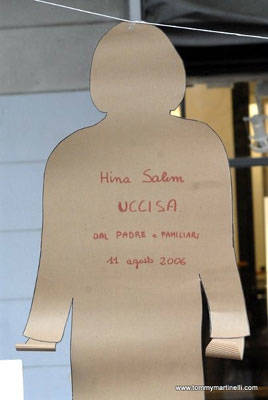 Hina Salem
UCCISA
DAL PADRE e FAMILIARI
11 agosto 2006
www.tommymartinelli.com